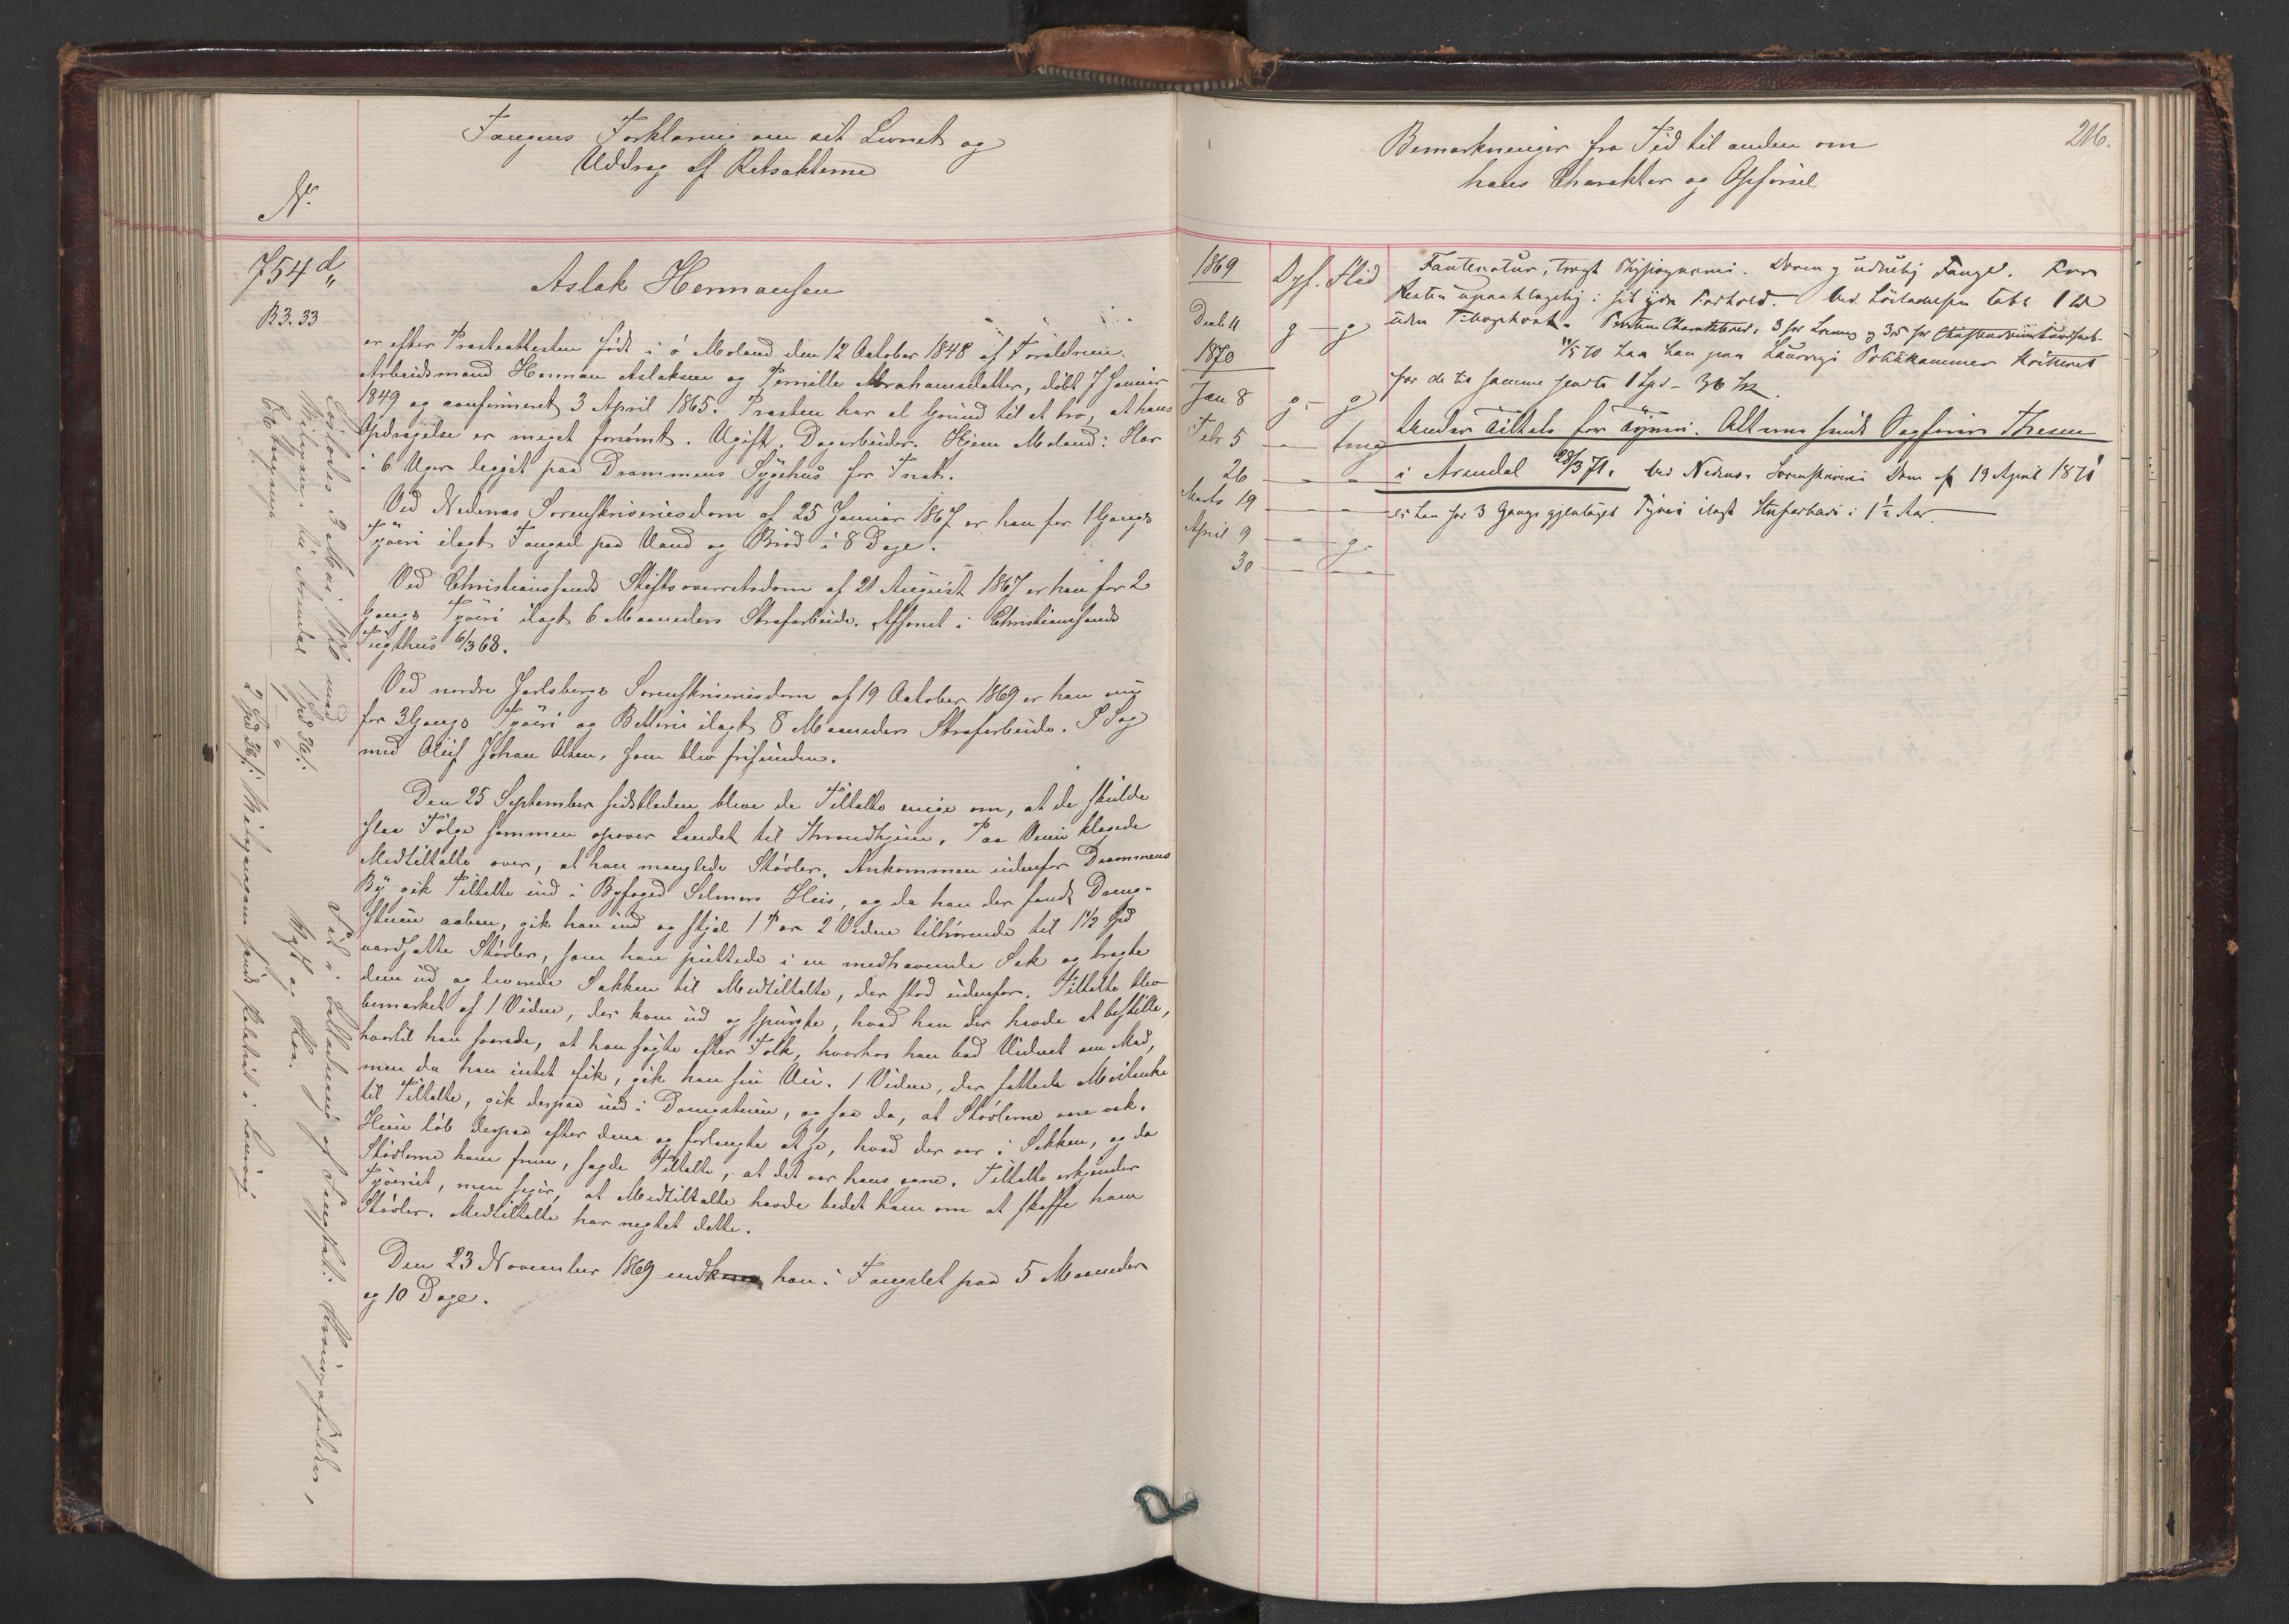 Fangens Forklaring om sit Levnet og
Uddrag af Retsakterne
No.
754 d„
B 3. 33
Aslak Hermansen
er efter Præsteattesten født i ø Moland den 12 October 1848 af Forældrene
Arbeidsmand Herman Aslaksen og Pernille Abrahamsdatter, døbt 7 Januar
1849 og confirmeret 3 April 1865. Præsten har al Grund til at tro, at hans
Opdragelse er meget forsømt. Ugift. Dagarbeider. Hjem Moland: Har
i 6 Uger ligget paa Drammens Sygehus for Fnat.
Ved Nedenæs Sorenskriveriesdom af 25 Januar 1867 er han for 1 Gangs
Tyveri ilagt Fængsel paa Vand og Brød i 8 Dage.
Ved Christianssands Stiftsoverretsdom af 21 August 1867 er han for 2
Gangs Tyveri ilagt 6 Maaneders Strafarbeide. Afsonet i Christianssands
Tugthus 6/3 68.
Ved nordre Jarlsbergs Sorenskriveriesdom af 19 October 1869 er han nu
for 3 Gangs Tyveri og Betleri ilagt 8 Maaneders Strafarbeide. I Sag
med Oluf Johan Olsen, som blev frifunden.
Den 25 September sidstleden bleve de Tiltalte enige om, at de skulde
slaa Følge sammen opover Landet til Throndhjem. Paa Veien klagede
Medtiltalte over, at han manglede Støvler. Ankommen udenfor Drammens
By gik Tiltalte ind i Byfoged Selmers Hus, og da han der fandt Dreng-
stuen aaben, gik han ind og stjal 1 Par 2 Vidne tilhørende til 1 1/2 Spd
værdsatte Støvler, som han puttede i en medhavende Sæk og bragte
dem ud og leverede Sækken til Medtiltalte, der stod udenfor. Tiltalte blev
bemærket af 1 Vidne, der kom ud og spurgte, hvad han der havde at bestille,
hvortil han svarede, at han søgte efter Folk, hvorhos han bad Vidnet om Mad,
men da han intet fik, gik han sin Vei. 1 Vidne, der fattede Mistanke
til Tiltalte, gik derpaa ind i Drengstuen, og saa da, at Støvlerne vare væk.
Hun løb derpaa efter dem og forlangte at se, hvad der var i Sækken, og da
Støvlerne kom frem, sagde Tiltalte, at det var hans egne. Tiltalte erkjender
Tyveriet, men siger, at Medtiltalte havde bedet ham om at skaffe ham
Støvler. Medtiltalte har negtet dette.
Den 23 November 1869 indkom han i Fængslet paa 5 Maaneder
og 10 Dage.
Løslades 3 Mai 1870 med
til Arendal 1 Spd 36 s:
1 - "
2 Spd 36 s:
Bemærkninger fra Tid til anden om
hans Charakter og Opførsel
216.
1869
Opf. Flid
Decb 11 g - g
1870
Jan 8 g - g
Febr 5 - - tmg
26 - - -
Marts 19 - - -
April 9 - - g.
30 - - -
Fantenatur, trægt Physiognomi. Doven og uduelig Fange. For
Resten upaaklagelig i sit ydre Forhold. Ved Løsladelsen tabt 1 ℔
11/5 70 laa han paa Laurvigs Politikammer
for de til samme sendte 1 Spd - 36 s.
Under Tiltale for Tyveri. Akterne sendt Sagfører Thesen
i Arendal 28/3 71. Ved Nedenæs Sorenskriveries Dom af 19 April 1871
er han for 3 Gangs gjentaget Tyveri ilagt Strafarbeide i 1 1/2 Aar